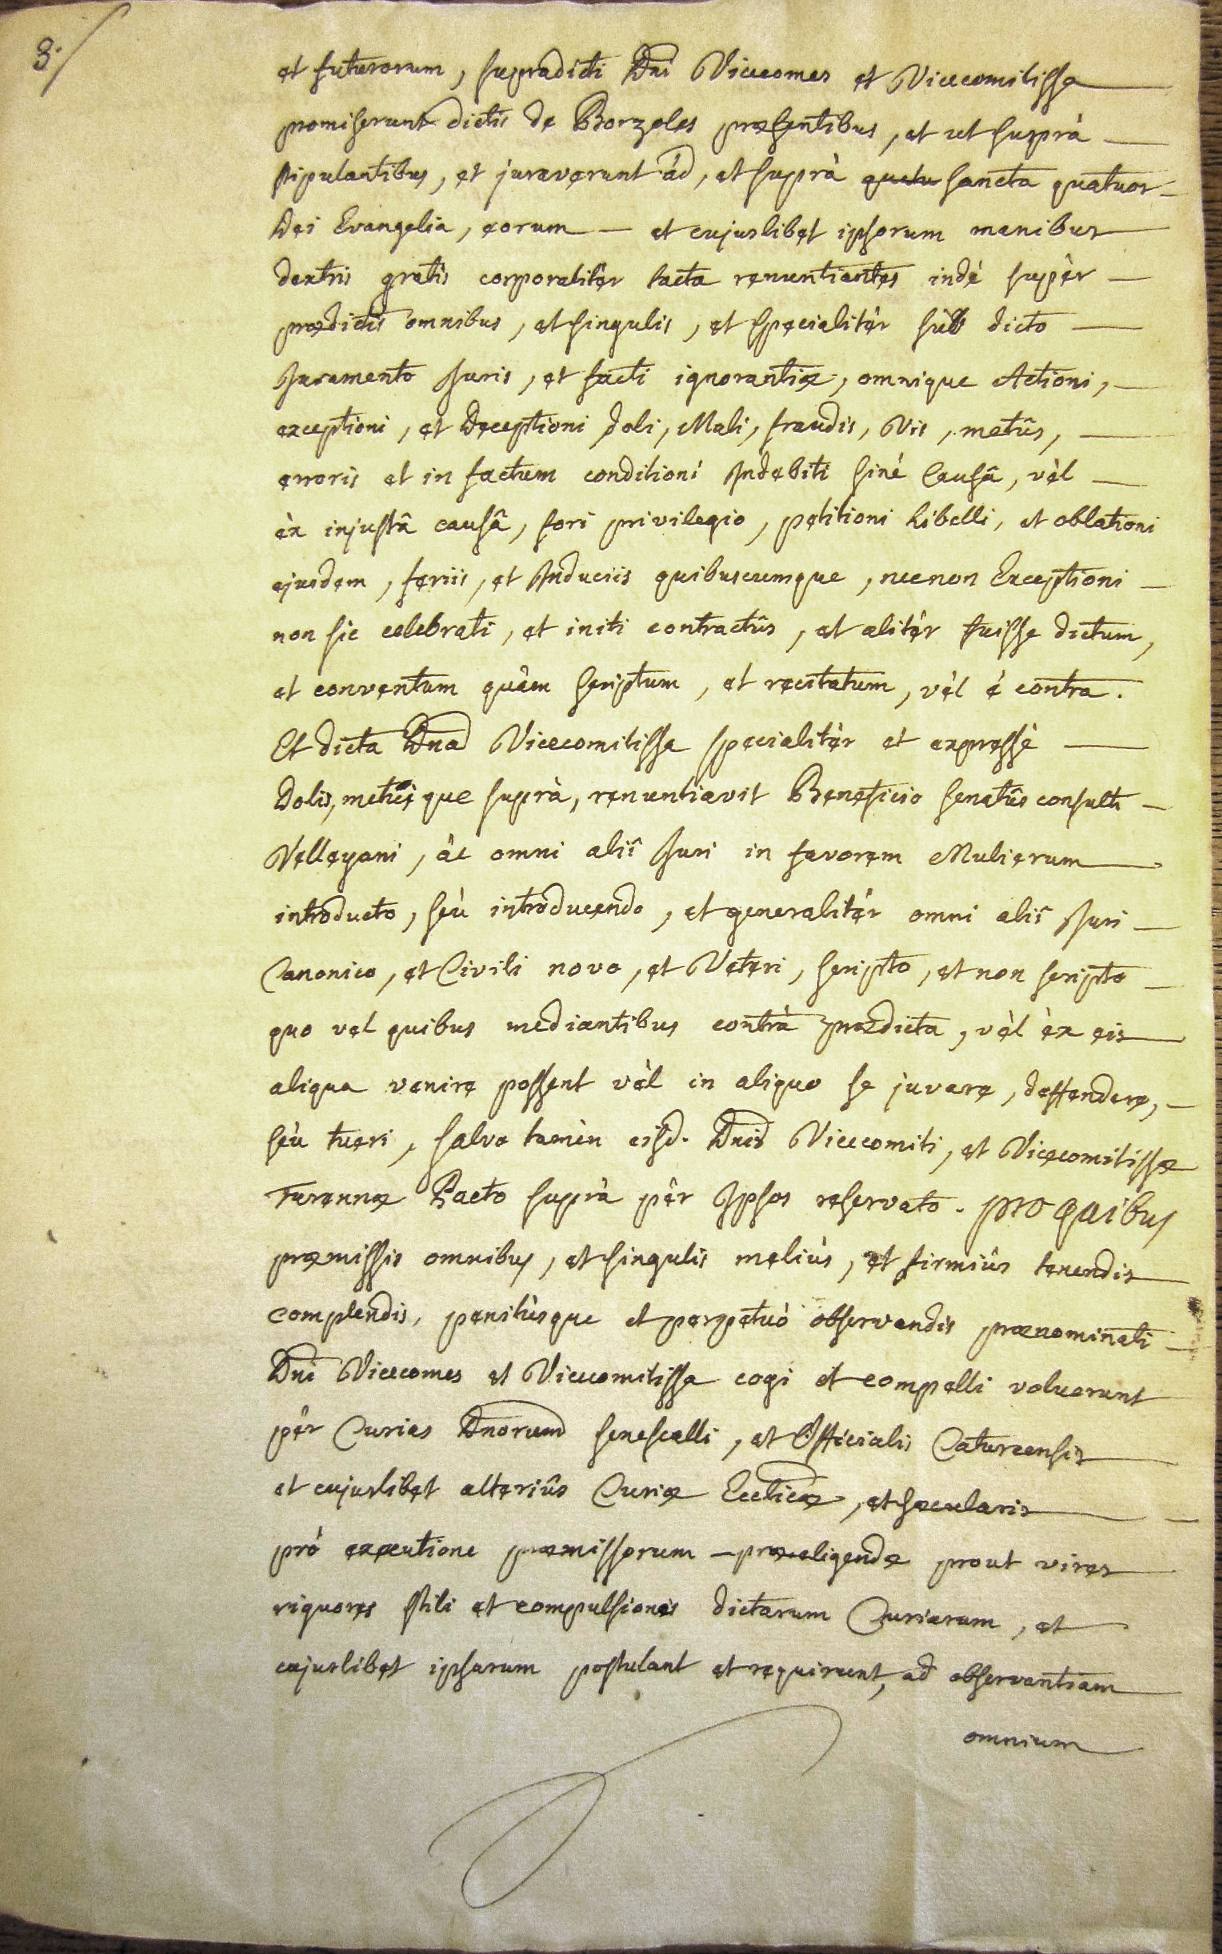 3.
et futurorum, supradicti Dni Vicecomes et Vicecomitissa
promiserunt dictis de Borzoles præsentibus, et ut suprà
stipulantibus, et juraverunt ád, et suprà quatu sancta quatuor
Dei Evangelia, eorum — et cujuslibet ipsorum manibus
dextris gratis corporalitèr tacta renuntiantes indé supèr
prædictis omnibus, et singulis, et specialitèr sub dicto
Juramento Juris, et facti ignorantiæ, omnique Actioni,
exceptioni, et Deceptioni Doli, Mali, fraudis, Vis, metûs,
erroris et in factum conditioni Indebiti siné Causâ, vèl
èx injustâ causâ, fori privilegio, petitioni Libelli, et oblationi
ejusdem, feriis, et Induciis quibuscumque, necnon Exceptioni
non sic celebrati, et initi contractûs, et alitèr fuisse dictum,
et conventum quàm scriptum, et recitatum, vèl é contra.
Et dicta Dnad Vicecomitissa specialitèr et expressè
Dolis, metûs que suprà, renuntiavit Beneficio senatûs consulti
Velleyani, àc omni aliî Juri in favorem Mulierum
introducto, seù introducendo, et generalitèr omni aliî Juri
Canonico, et Civili novo, et Veteri, scripto, et non scripto
quo vel quibus mediantibus contrà prædicta, vèl èx eis
aliqua venire possent vèl in aliquo se juvare, deffendere,
seù tueri, salvo tamèn eisd. Dnis Vicecomiti, et Vicecomitissæ
Turennæ Pacto suprà pèr Ipsos reservato. pro quibus
præmissis omnibus, et singulis meliùs, et firmiùs tenendis
complendis, penitùsque et perpetuò observandis prænominati
Dni Vicecomes et Vicecomitissa cogi et compelli voluerunt
pèr Curias Dnorum senescalli, et Officialis Caturcensis
et cujuslibet alteriûs Curiæ Ecclicæ, et sæcularis
prò executione præmissorum — præeligendæ prout vires
rigores stili et compulsiones dictarum Curiarum, et
cujuslibet ipsarum postulant et requirunt, ad observantiam
omnium